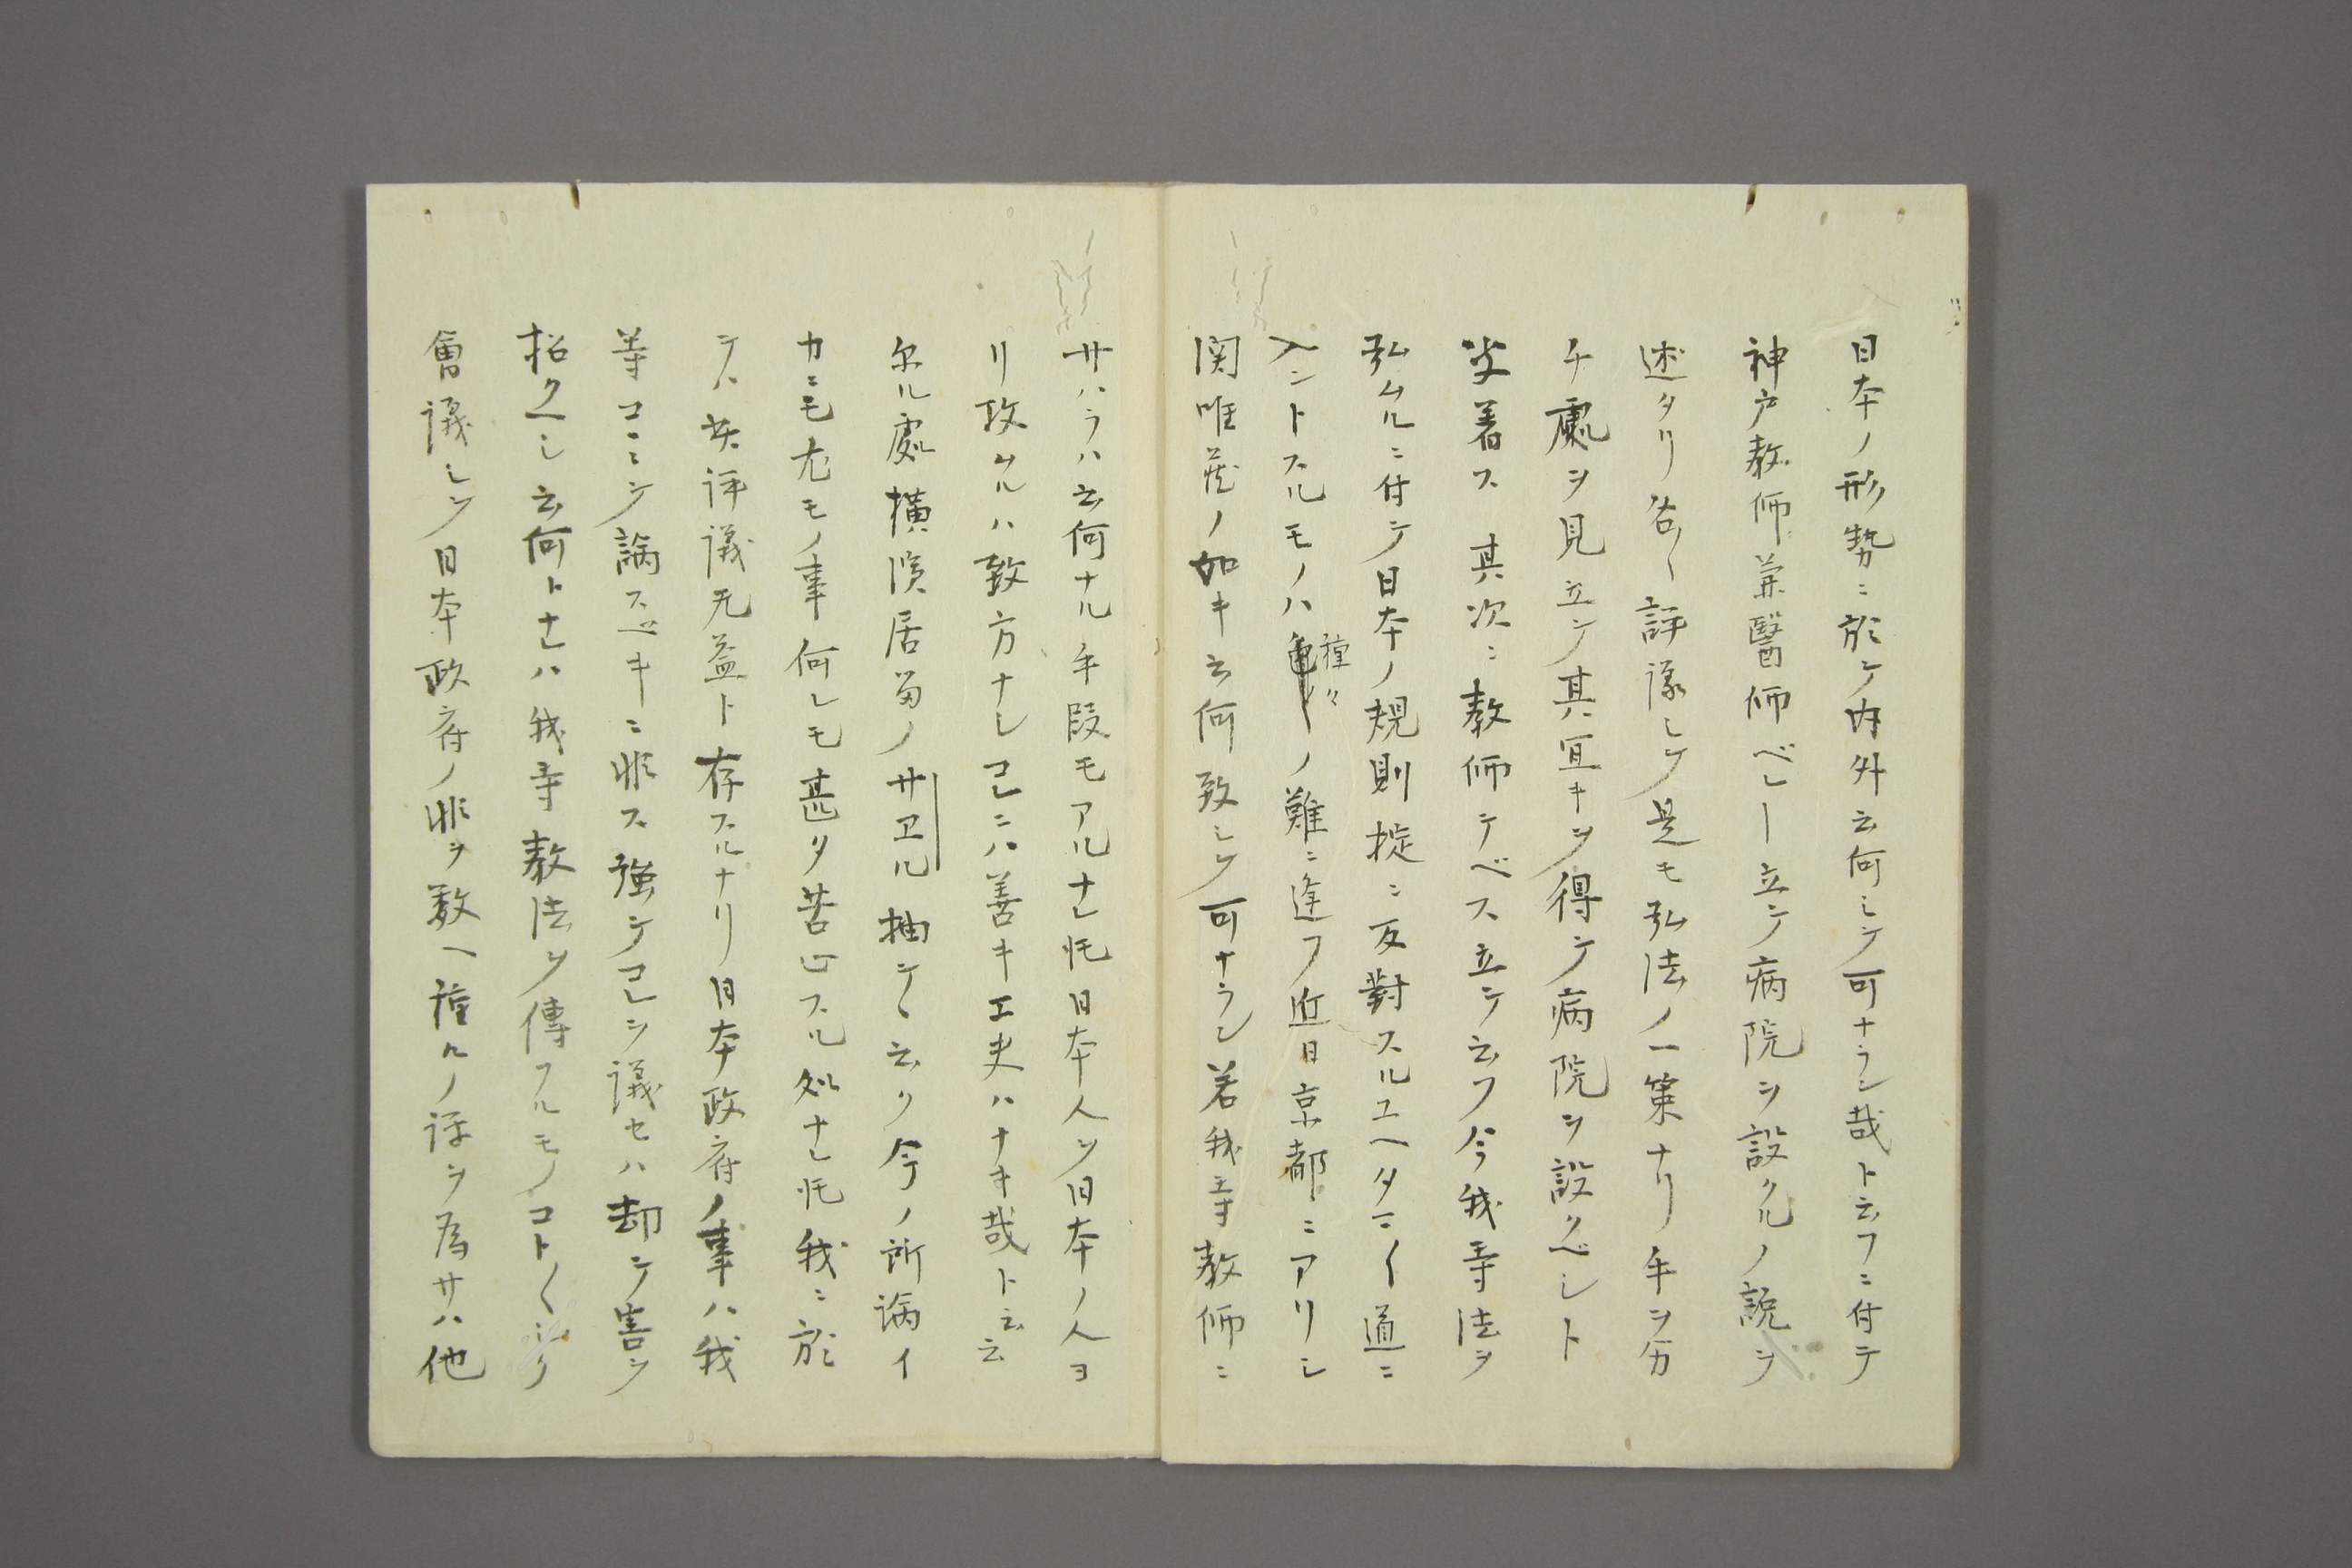 日本ノ形勢ニ於テ内外云何シテ可ナラン哉ト云フニ付テ
神戸教師兼醫師ベレー立テ病院ヲ設クルノ説ヲ
述タリ各〻評議シテ是モ弘法ノ一策ナリ手ヲ分
チ處ヲ見立テ其宜キヲ得テ病院ヲ設クベシト
决着ス其次ニ教師テベス立テ云フ今我寺法ヲ
弘ムルニ付テ日本ノ規則掟ニ反對スルユヘタマ〱道ニ
入ントスルモノハ種々ノ難ニ逢フ近日京都ニアリシ
関唯蔵ノ如キ云何致シテ可ナラン若我寺教師ニ
サハラハ云何ナル手段モアルナレ㐧日本人ヲ日本ノ人ヨ
リ攻ムルハ致方ナシコレニハ善キ工夫ハナキ哉ト云云
尓ル處横濱居畄ノサワル抽テ〻云ク今ノ所論イ
カニモ尤モノ事何レモ甚タ苦心スル処ナレ㐧我ニ於
テハ其評議无益ト存スルナリ日本政府ノ事ハ我
等コヽニテ論スヘキニ非ス強テコレヲ議セハ却テ害ヲ
招クヘシ云何トナレハ我寺教法ヲ傳フルモノコト〱ク
會議シテ日本政府ノ非ヲ数ヘ種々ノ評ヲ為サハ他